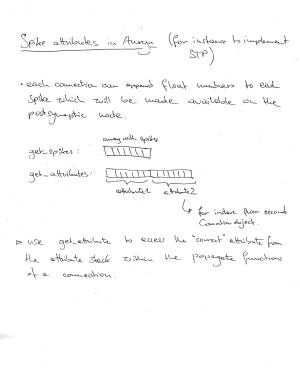 Spike attributes in Auryn (for instance to implement
STP)
• each connection can append float numbers to each
spike which will be made available on the
postsynaptic node.
array with spikes
get_spikes:
get_attributes:
attribute1 attribute2
for instance from second
Connection object.
▷ use get_attribute to access the "correct" attribute from
the attribute stack within the propagate functions
of a connection.